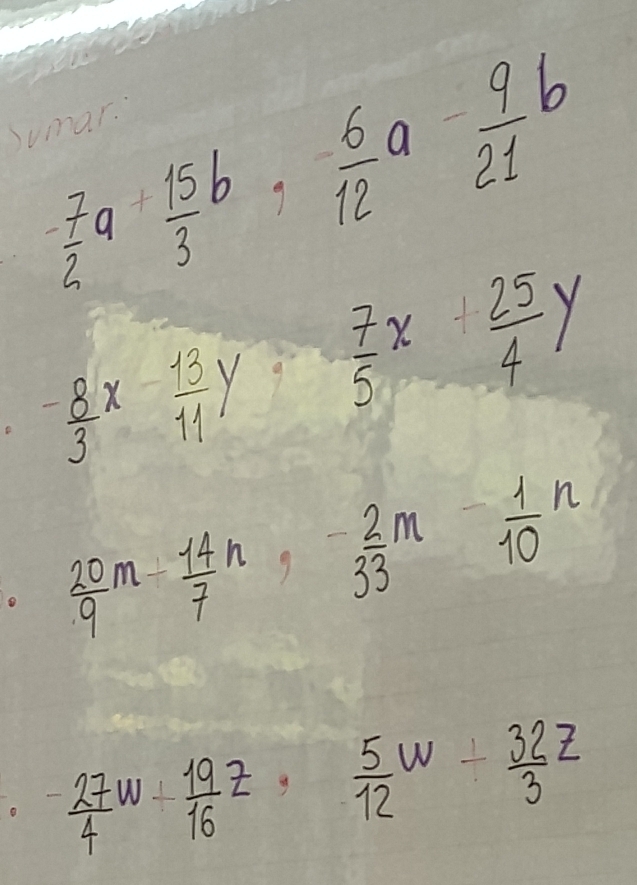 Sumar:
-7/2 a + 15/3 b , -6/12 a - 9/21 b
. -8/3 x - 13/11 y , 7/5 x + 25/4 y
. 20/9 m + 14/7 n , -2/33 m - 1/10 n
. -27/4 w + 19/16 z , 5/12 w + 32/3 z